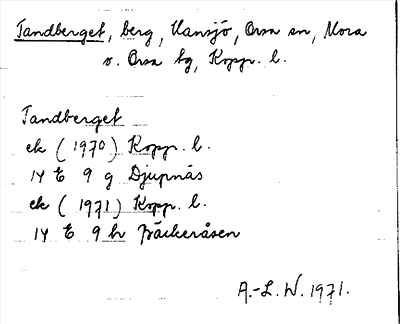 Tandberget, berg, Hansjö, Orsa sn, Mora
o. Orsa tg, Kopp. l.
Tandberget
ek (1970) Kopp. l.
14 E 9 g Djupnäs
ek (1971) Kopp. l.
14 E 9 h Bäckeråsen
A.-L. W. 1971.